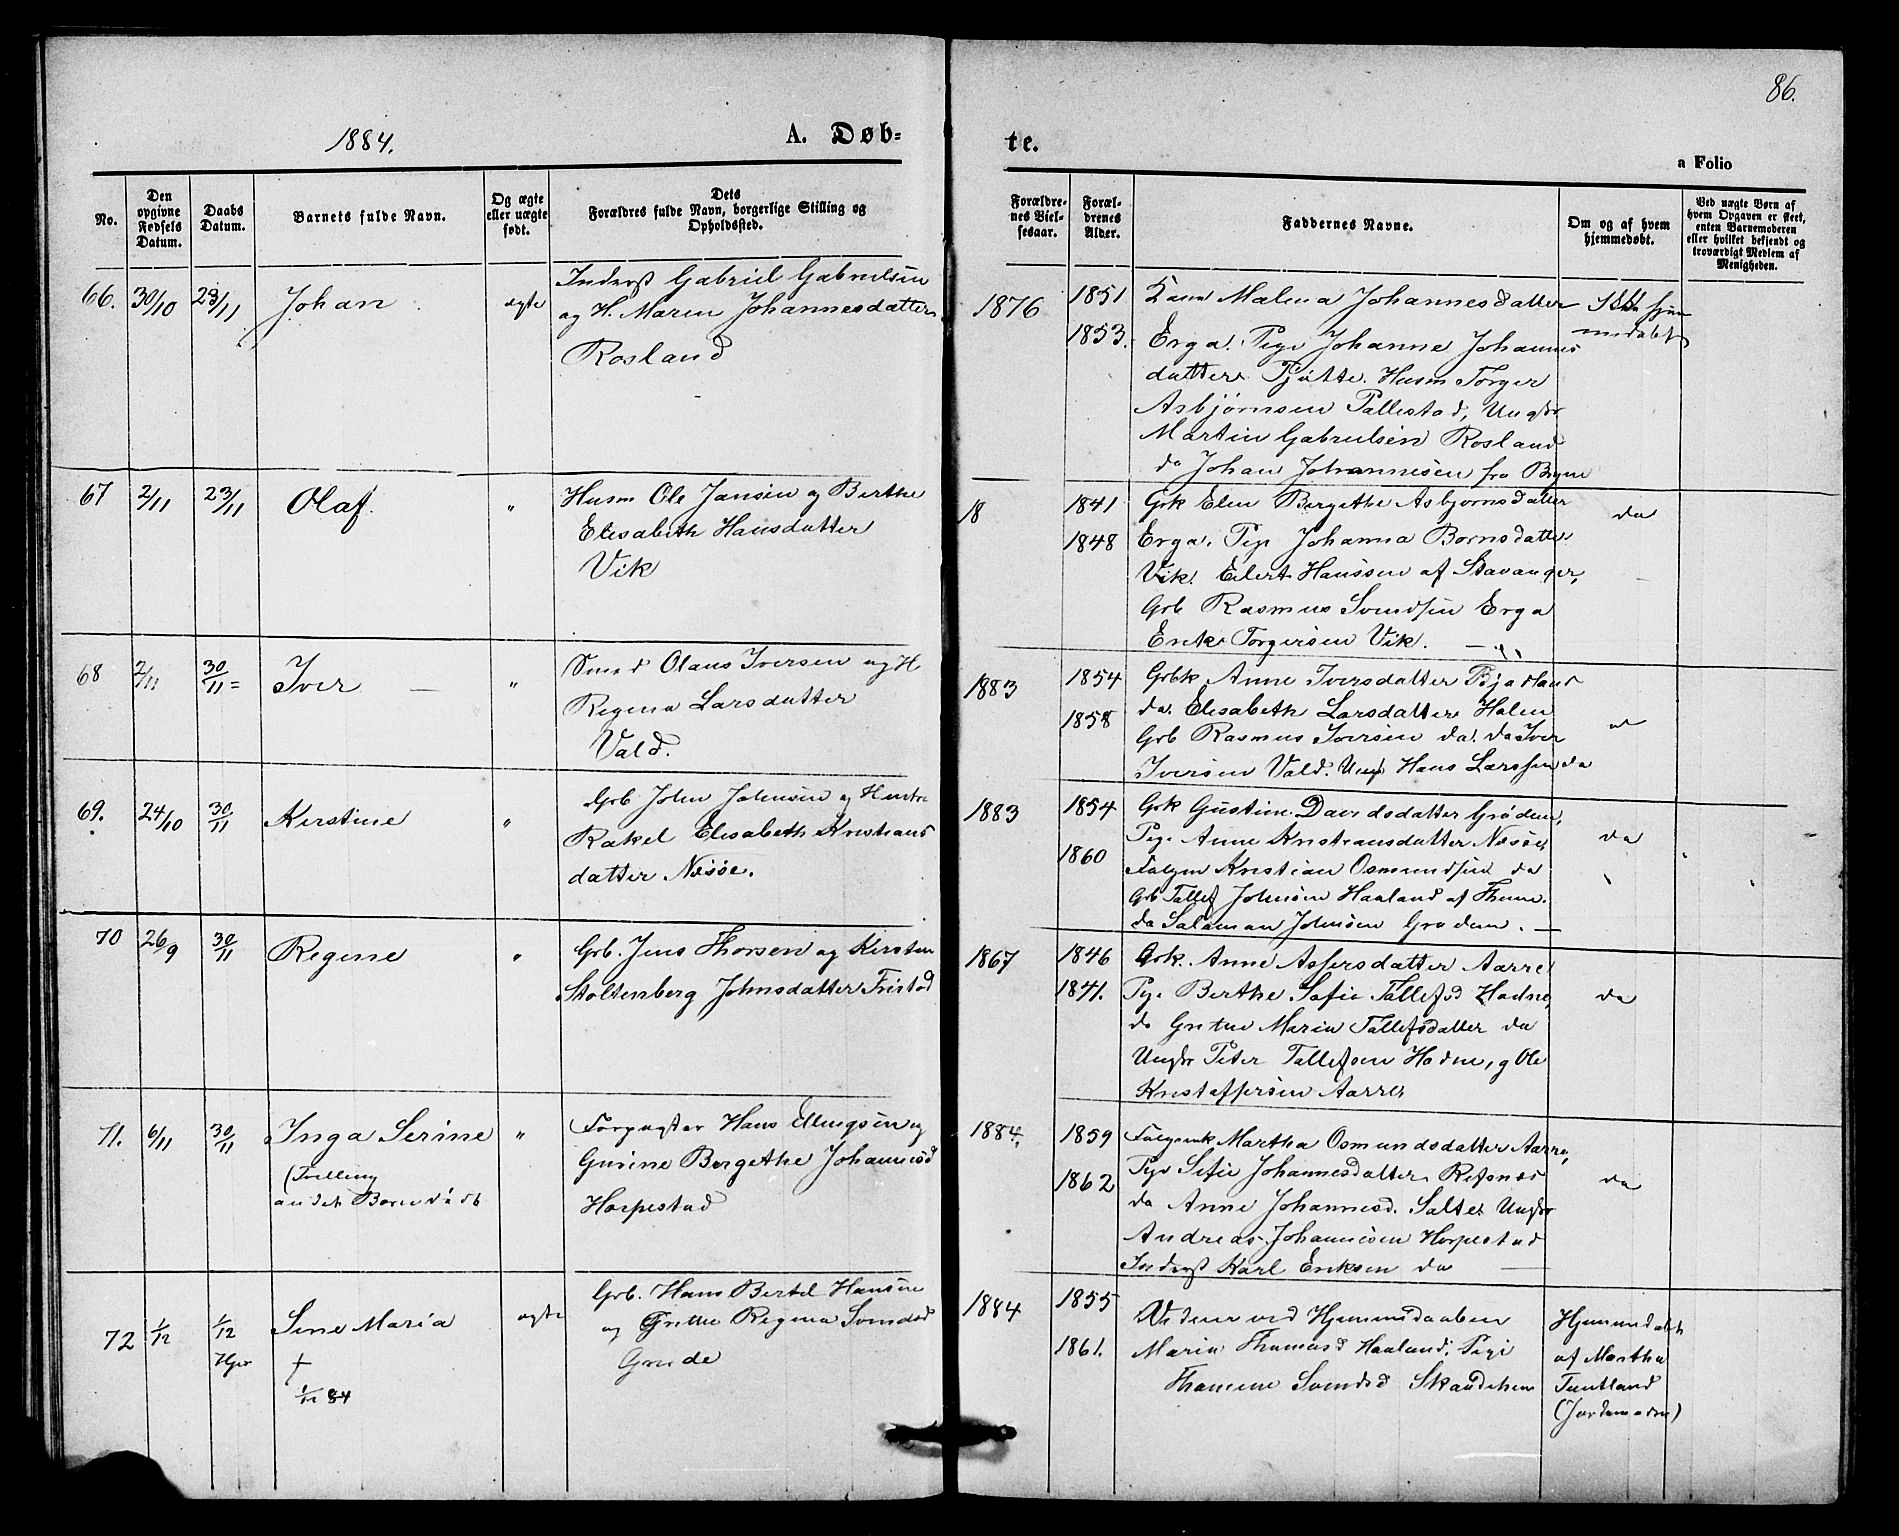 86.
1884.
A. Døb-
te.
a Folio
No.
Den opgivne Fødsels Datum.
Daabs Datum.
Barnets fulde Navn.
Og ægte eller uægte født.
Dets Forældres fulde Navn, borgerlige Stilling og Opholdssted.
Forældrenes Vielsesaar.
Forældrenes Alder.
Faddernes Navne.
Om og af hvem hjemmedøbt.
Ved uægte Børn af hvem Opgaven er skeet, enten Barnemoderen eller hvilket bekjendt og troværdigt Medlem af Menigheden.
66. 30/10 23/11 Johan ægte
Inderst Gabriel Gabrielsen
og H. Maren Johannesdatter
Rosland
1876 1851 1853.
Malena Johannesdatter
Erga. Pige Johanne Johannes
datter Tjøtte. Husm Torger
Asbjørnsen Pallestad, Ungkr
Martin Gabrielsen Rosland
do Johan Johannesen fra Bryne
Ikke hjem
medøbt
67 2/11 23/11 Olaf. "
Husm Ole Jansen og Berthe
Elisabeth Hansdatter
Vik
18 1841 1848
Grk Elen Bergethe Asbjornsdatter
Erga. Pige Johanna Bornsdatter
Vik. Eilert Hanssen af Stavanger,
Grb Rasmus Svendsen Erga
Erik Torgersen Vik.
da
68 2/11 30/11 Iver "
Smed Olaus Iversen og H
Regina Larsdatter
Vald.
1883 1854 1858
Grbk. Anne Iversdatter Bjorland
da. Elisabeth Larsdatter Holen
Grb Rasmus Iversen da. da Iver
Iversen Vald. Ungk Hans Larssen da
69. 24/10 30/11 Kirstine "
Grb John Johnsen og Hustru
Rakel Elisabeth Kristians
datter Næsøe.
1883 1854 1860
Grk Gustine Davidsdatter Grødem,
Pige Anne Kristiansdatter Næsøe,
Folgm Kristian Osmundsen da
Grb Tallef Johnsen Haaland af Thime.
da Salamon Johnsen Grødem.
da
70 26/9 30/11 Regine "
Grb. Jens Thorsen og Kirsten
Stoltenberg Johnsdatter Fristad
1867 1846 1841.
Grk. Anne Assersdatter Aarre
Pige Berthe Sofie Tallefsd Hodne,
do Grethe Maria Tallefsdatter da
Ungkr Peter Tallefsen Hodne, og Ole
Kristoffersen Aarre,
da
71. 6/11 30/11 Inga Serine "
(Tvilling
andet Barn død
Forpagter Hans Ellingsen og
Gurine Bergethe Johannesd
Horpestad
1884. 1859 1862
Folgemk Martha Osmundsdatter Aarre,
Pige Sefie Johannesdatter Refsnæs
do Anne Johannesd. Salte. Ungkr
Andreas Johannesen Horpestad
Inderst Karl Eriksen da
da
72 1/12 1/12
Hjm
Sine Maria ægte
†
1/12 84
Grb. Hans Bertel Hansen
og Grethe Regina Svendsd
Grude
1884 1855 1861.
Vidner ved Hjemmedaaben
Maria Thomasd Haaland, Pige
Svendsd Skaadeheim
Hjemmedøbt
af Martha
Tuntland
(Jordemoder)